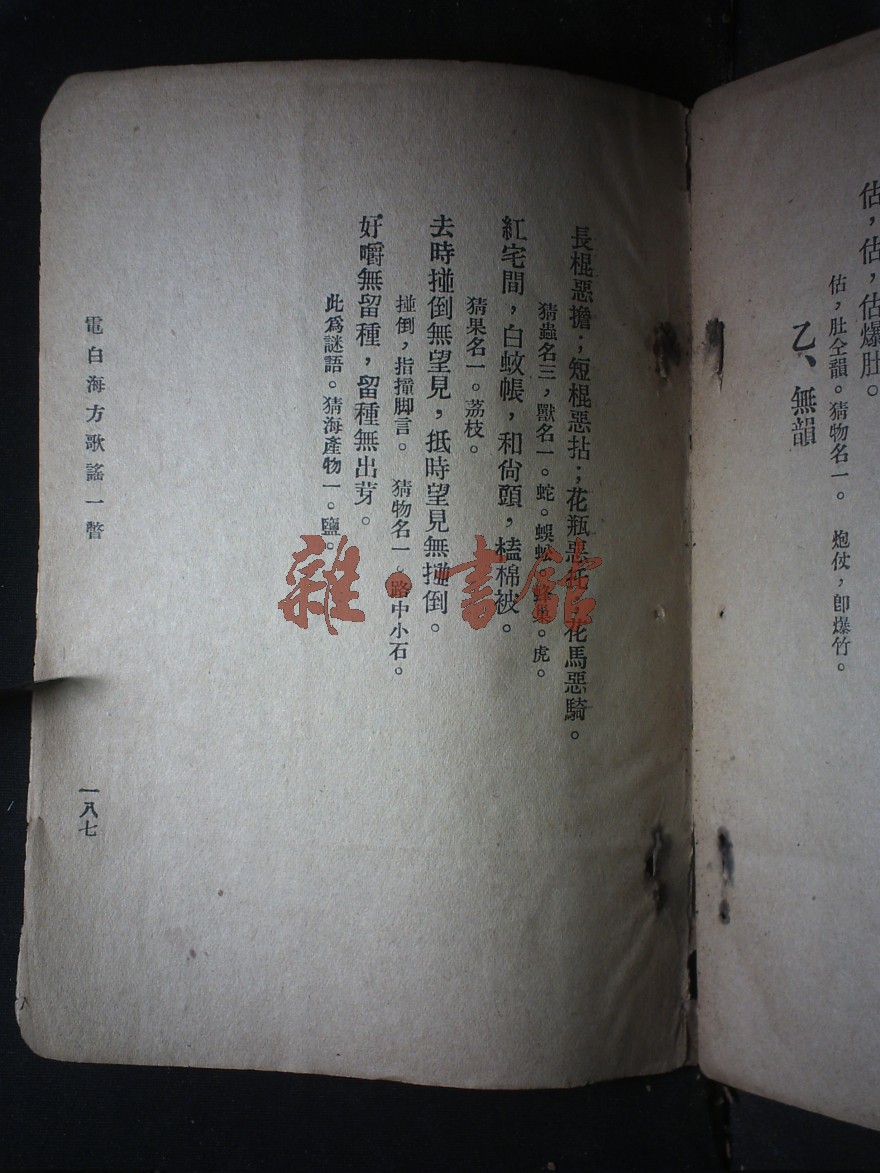 估，估，估爆肚。
估，肚仝韻。猜物名一。　炮仗，卽爆竹。
乙、無韻
長棍惡擔；短棍惡拈；花瓶惡托；花馬惡騎。
猜蟲名三，獸名一。蛇。蜈蚣。蜂巢。虎。
紅宅間，白蚊帳，和尙頭，榼棉被。
猜果名一。荔枝。
去時㨃倒無望見，抵時望見無㨃倒。
㨃倒，指撞脚言。　猜物名一。路中小石。
好嚼無留種，留種無出芽。
此爲謎語。猜海產物一。鹽。
電白海方歌謠一瞥
一八七
雜·書館